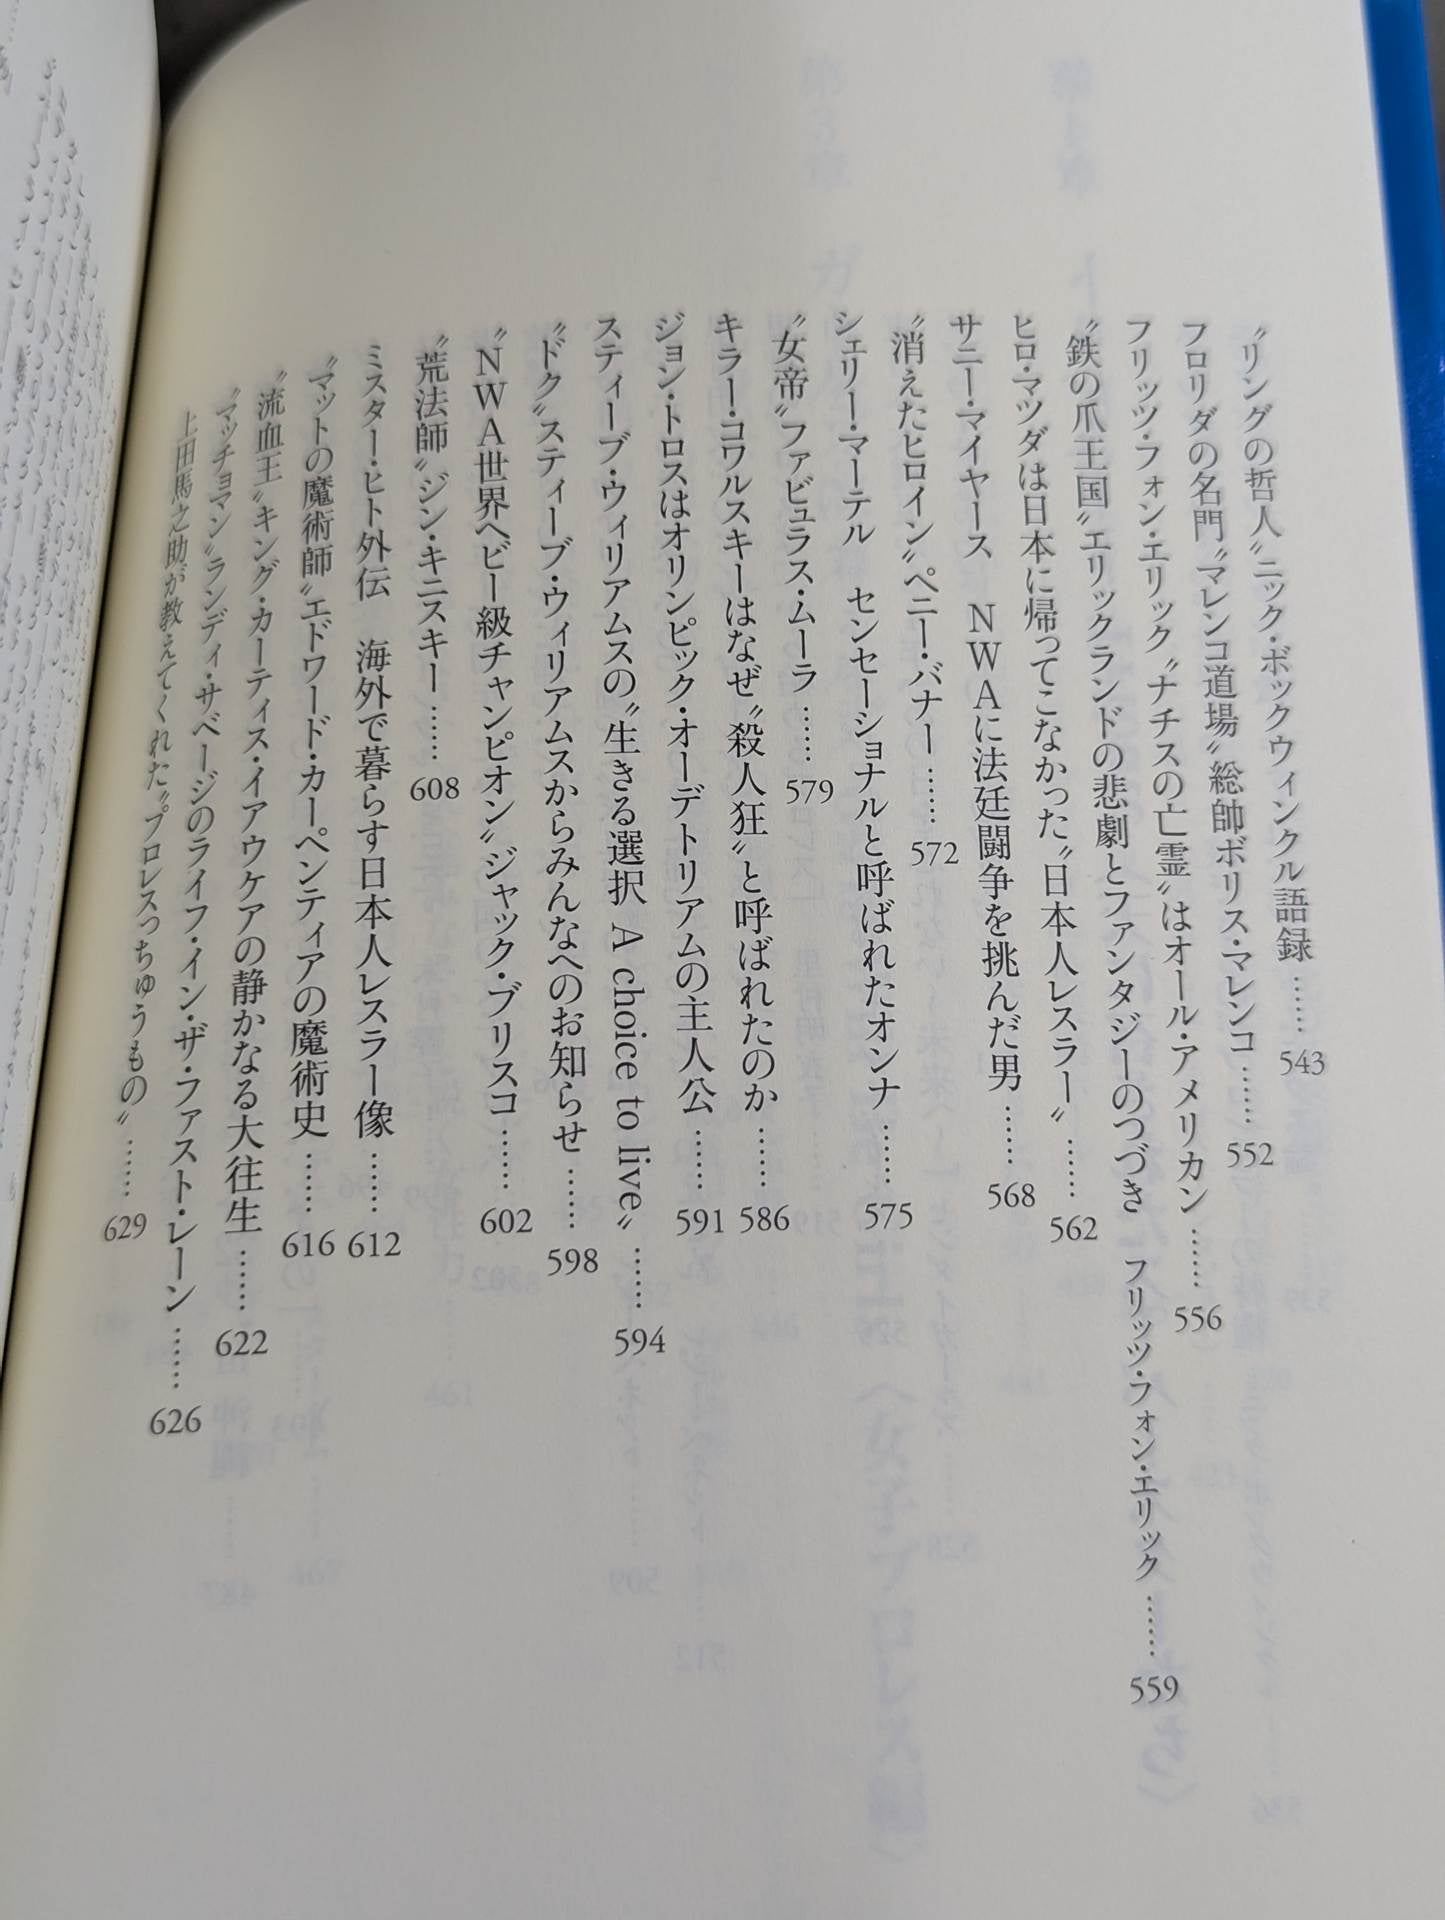 〝リングの哲人〟ニック・ボックウィンクル語録……543
フロリダの名門〝マレンコ道場〟総師ボリス・マレンコ……552
フリッツ・フォン・エリック〝ナチスの亡霊〟はオール・アメリカン……556
〝鉄の爪王国〟エリックランドの悲劇とファンタジーのつづき　フリッツ・フォン・エリック……559
ヒロ・マツダは日本に帰ってこなかった〝日本人レスラー〟……562
サニー・マイヤース　NWAに法廷闘争を挑んだ男……568
〝消えたヒロイン〟ペニー・バナー……572
シェリー・マーテル　センセーショナルと呼ばれたオンナ……575
〝女帝〟ファビュラス・ムーラ……579
キラー・コワルスキーはなぜ〝殺人狂〟と呼ばれたのか……586
ジョン・トロスはオリンピック・オーデトリアムの主人公……591
スティーブ・ウィリアムスの〝生きる選択 A choice to live〟……594
〝ドク〟スティーブ・ウィリアムスからみんなへのお知らせ……598
〝NWA世界ヘビー級チャンピオン〟ジャック・ブリスコ……602
〝荒法師〟ジン・キニスキー……608
ミスター・ヒト外伝　海外で暮らす日本人レスラー像……612
〝マットの魔術師〟エドワード・カーペンティアの魔術史……616
〝流血王〟キング・カーティス・イアウケアの静かなる大往生……622
〝マッチョマン〟ランディ・サベージのライフ・イン・ザ・ファスト・レーン……626
上田馬之助が教えてくれた〝プロレスっちゅうもの〟……629